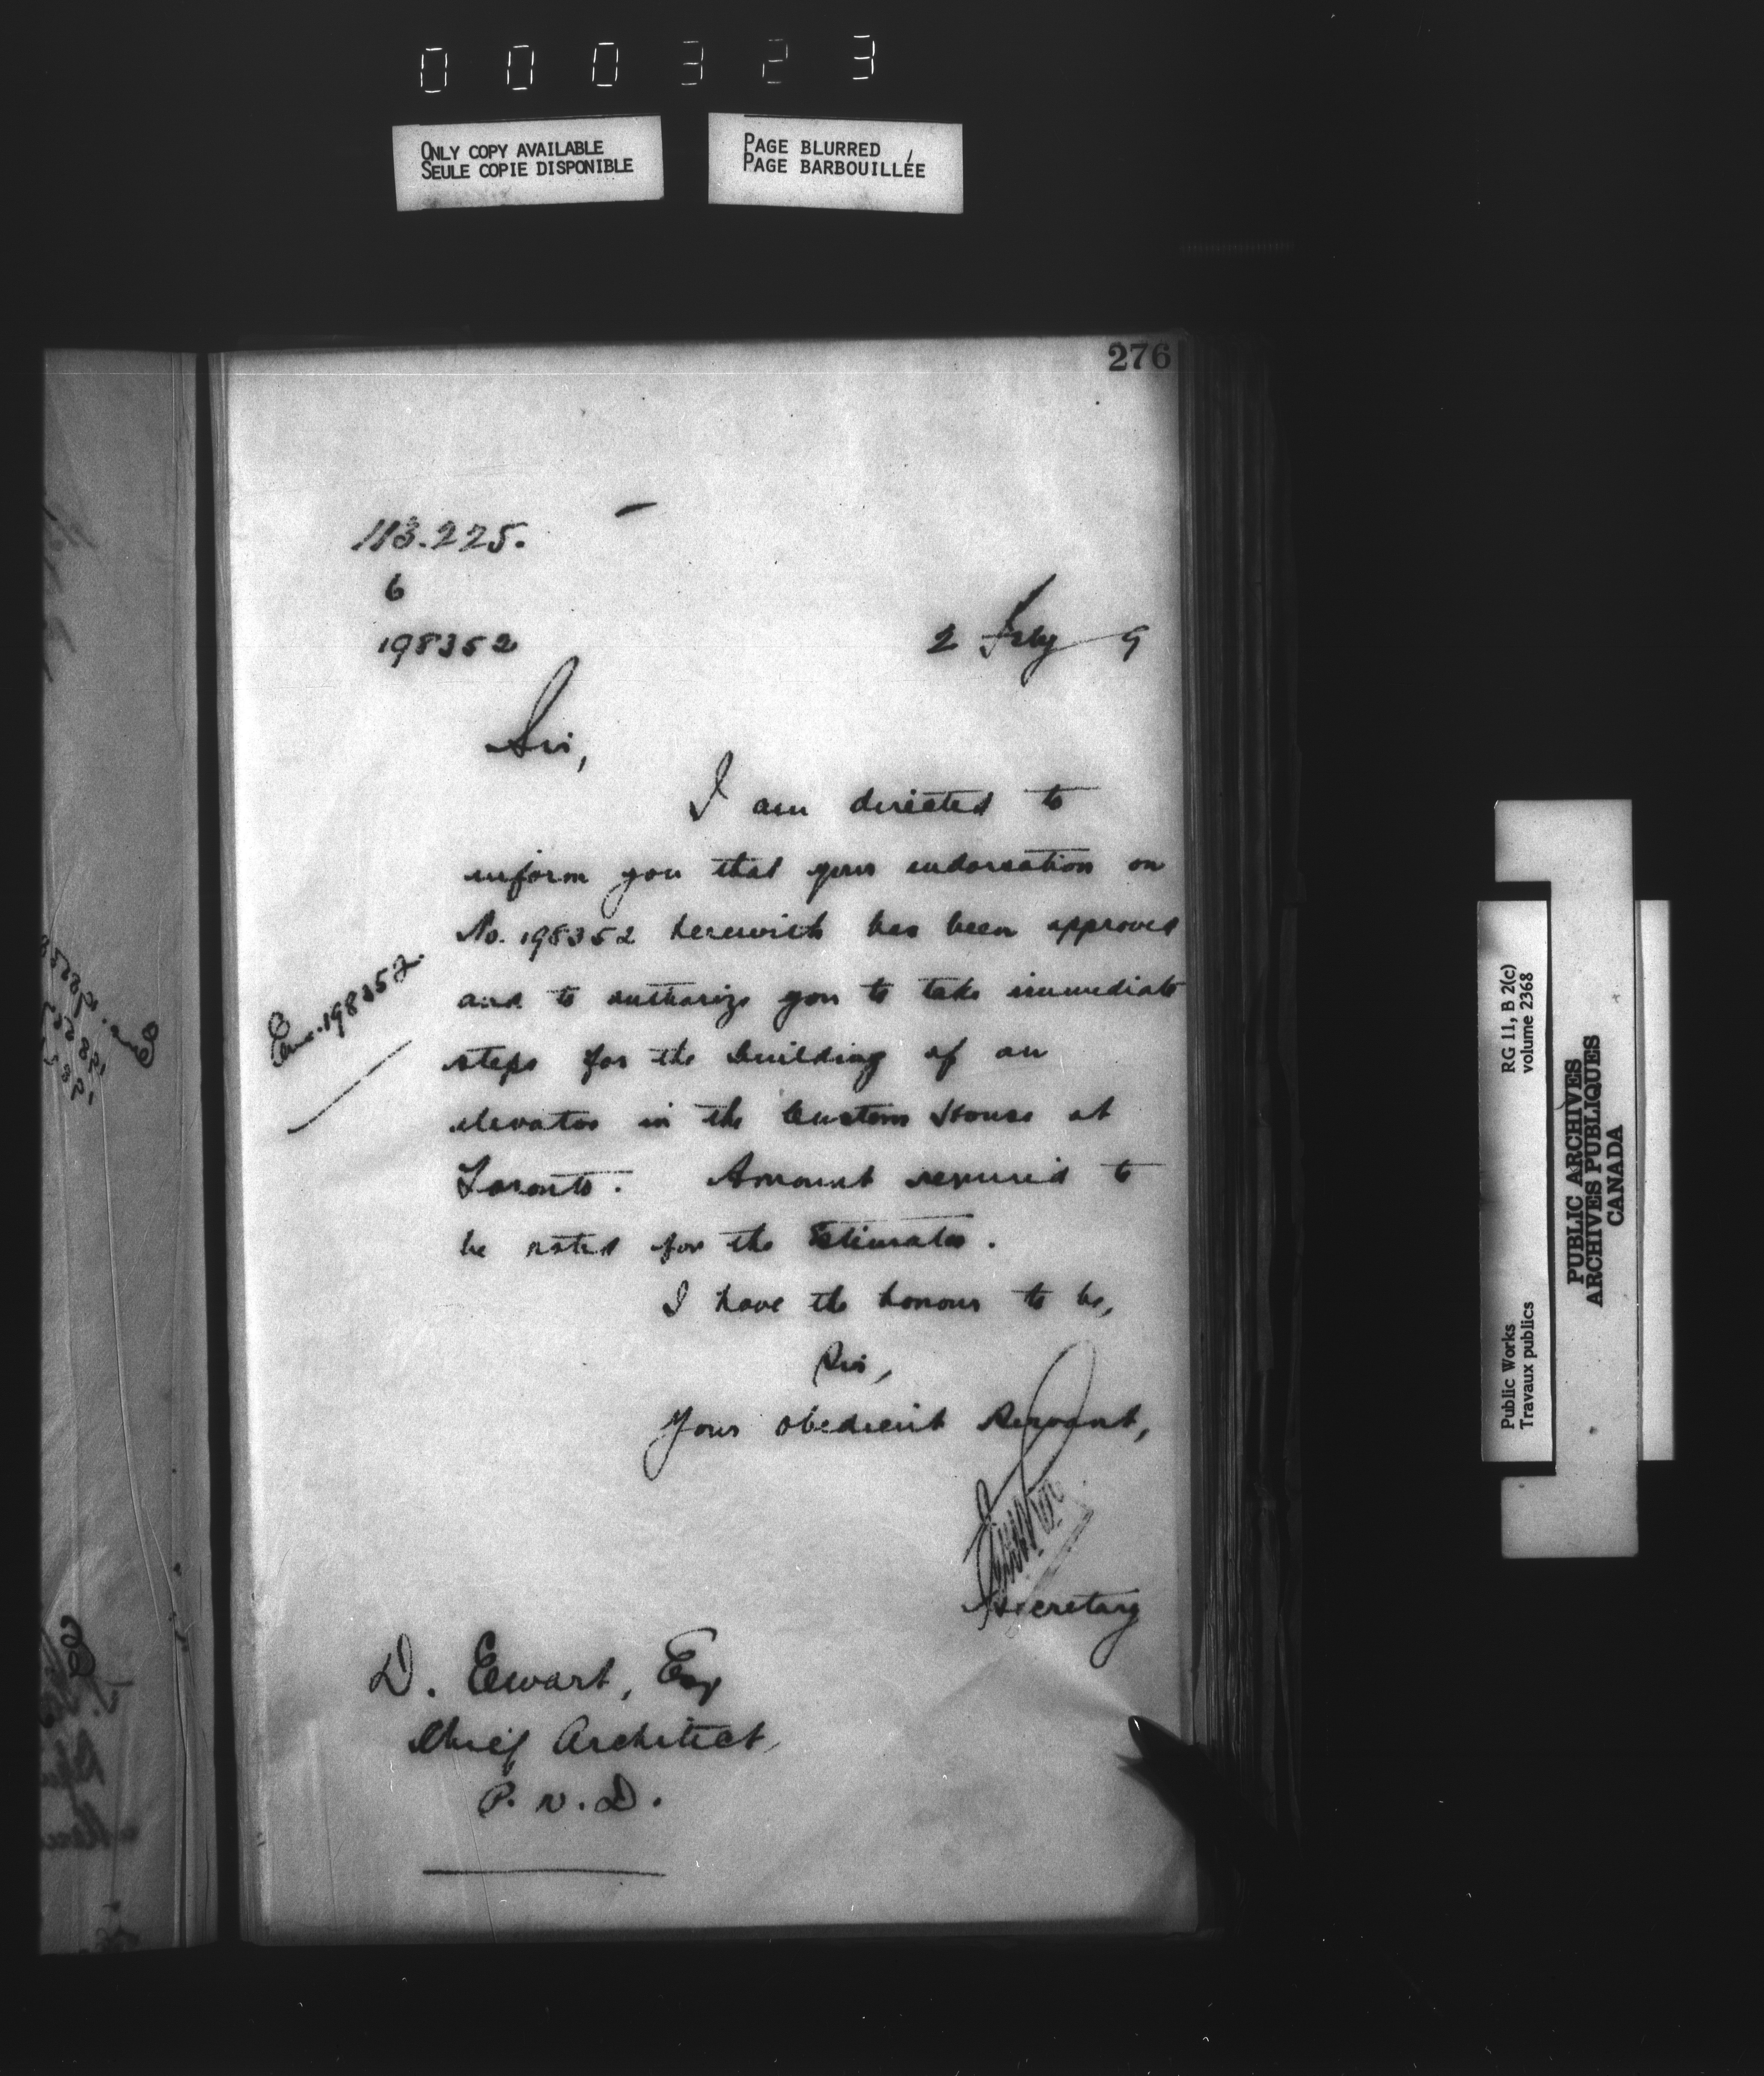 000323
ONLY COPY AVAILABLE
SEULE COPIE DISPONIBLE
PAGE BLURRED
PAGE BARBOUILLÉE
276
113.225.
6
198352
2 Feby 9
Sir,
I am directed to
inform you that your endorsation on
No. 198352 herewith has been approved
and to authorize you to take immediate
steps for the building of an
elevator in the Custom House at
Toronto. Amount required to
be noted for the Estimates.
Enc. 198352.
I have the honour to be,
Sir,
Your obedient Servant,
Secretary
D. Ewart, Esq
Chief Architect,
P.W.D.
Public Works
Travaux publics
RG 11, B 2(c)
volume 2368
PUBLIC ARCHIVES
ARCHIVES PUBLIQUES
CANADA